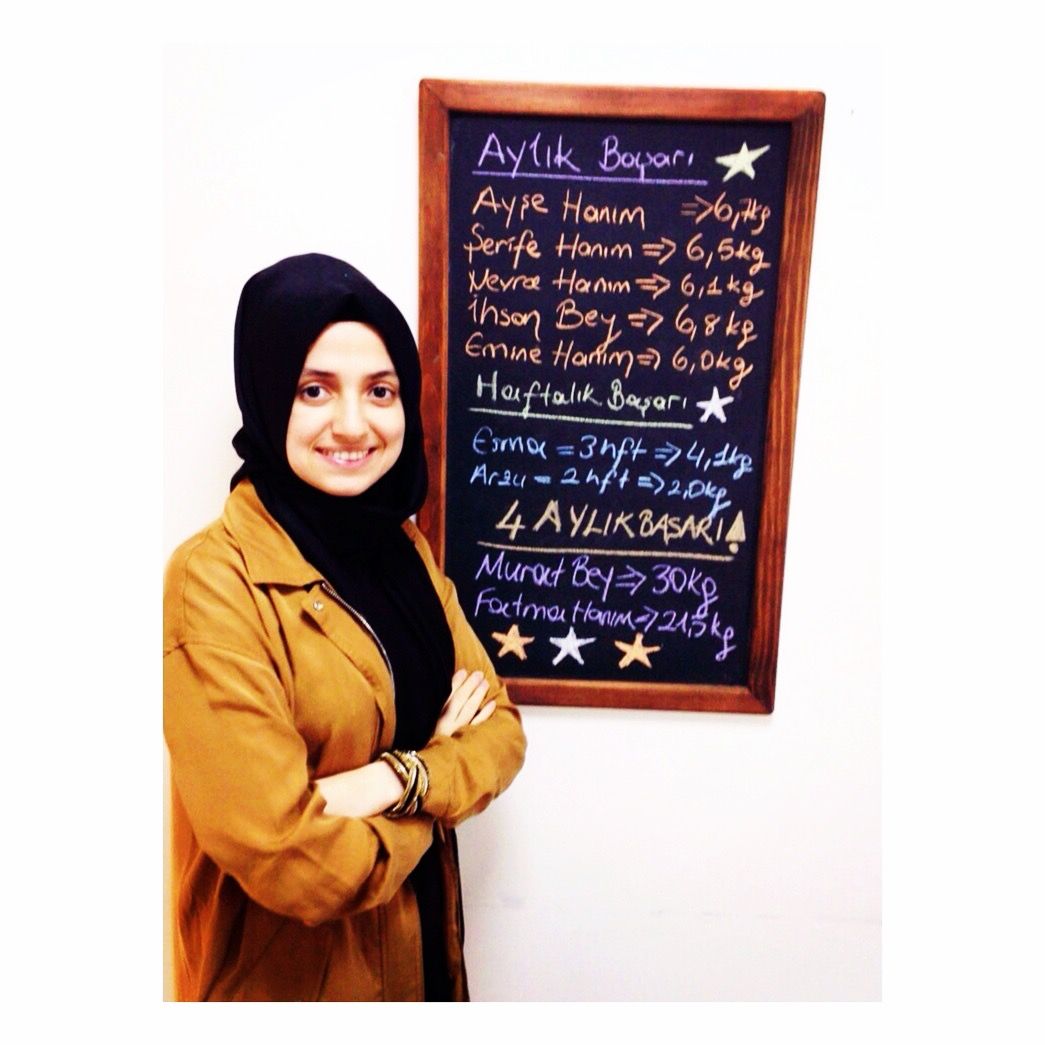 Aylık Başarı
Ayşe Hanım => 6,7kg
Şerife Hanım => 6,5kg
Nevra Hanım => 6,1kg
İhsan Bey => 6,8kg
Emine Hanım => 6,0kg
Haftalık Başarı
Esma = 3hft => 4,1kg
Arzu = 2hft => 2,0kg
4 AYLIK BAŞARI!
Murat Bey => 30kg
Fatma Hanım => 21,5kg